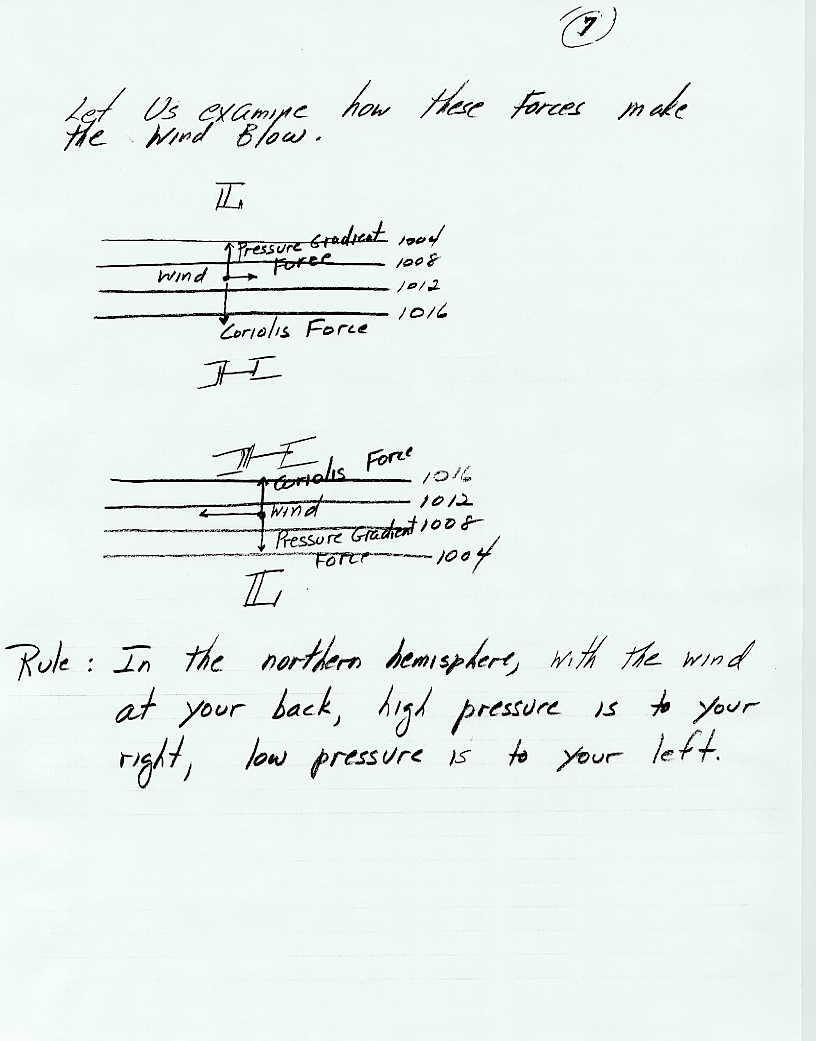 7
Let Us examine how these Forces make
the Wind Blow.
L
Pressure Gradient 1004
Force 1008
Wind
1012
1016
Coriolis Force
H
H
Coriolis Force
1016
1012
Wind
1008
Pressure Gradient
Force 1004
L
Rule: In the northern hemisphere, with the wind
at your back, high pressure is to your
right, low pressure is to your left.